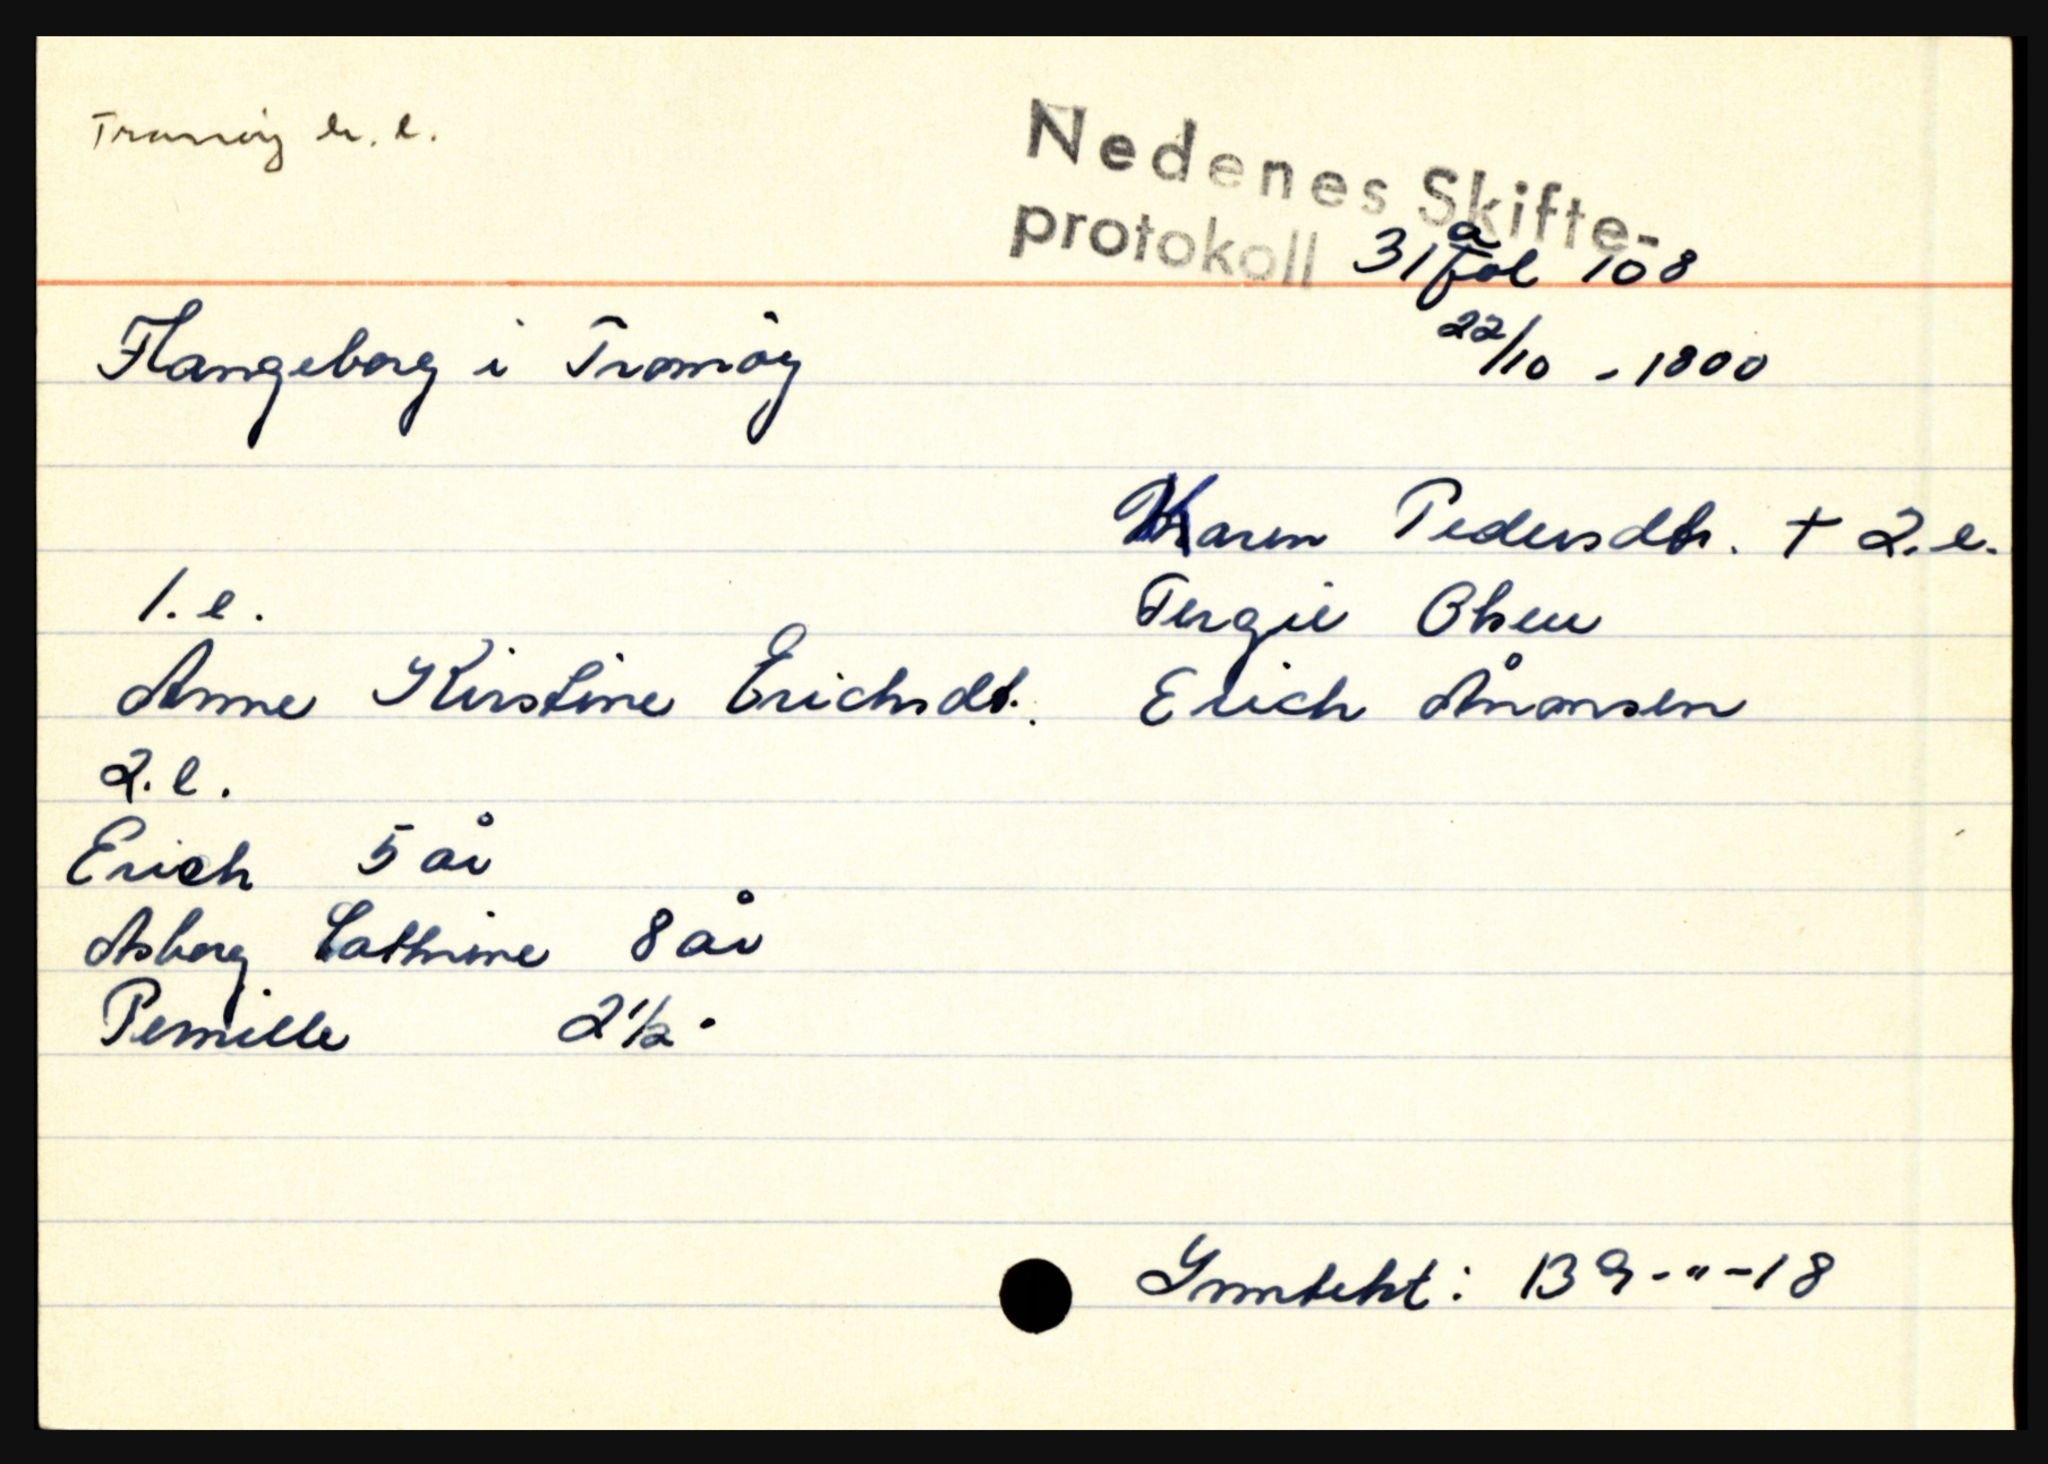 Tromøy h. l.
Nedenes Skifte-
protokoll 31a fol 108
Flangeborg i Tromöy
22/10 - 1800
Karen Pedersdtr. + 2. e.
1. e.
Tergie Olsen
Anne Kirstine Erichsdt.
Erich Ånonsen
2. e.
Erich 5 år
Asborg Cathrine 8 år
Pernille 2 1/2 "
Inntekt: 139-"-18